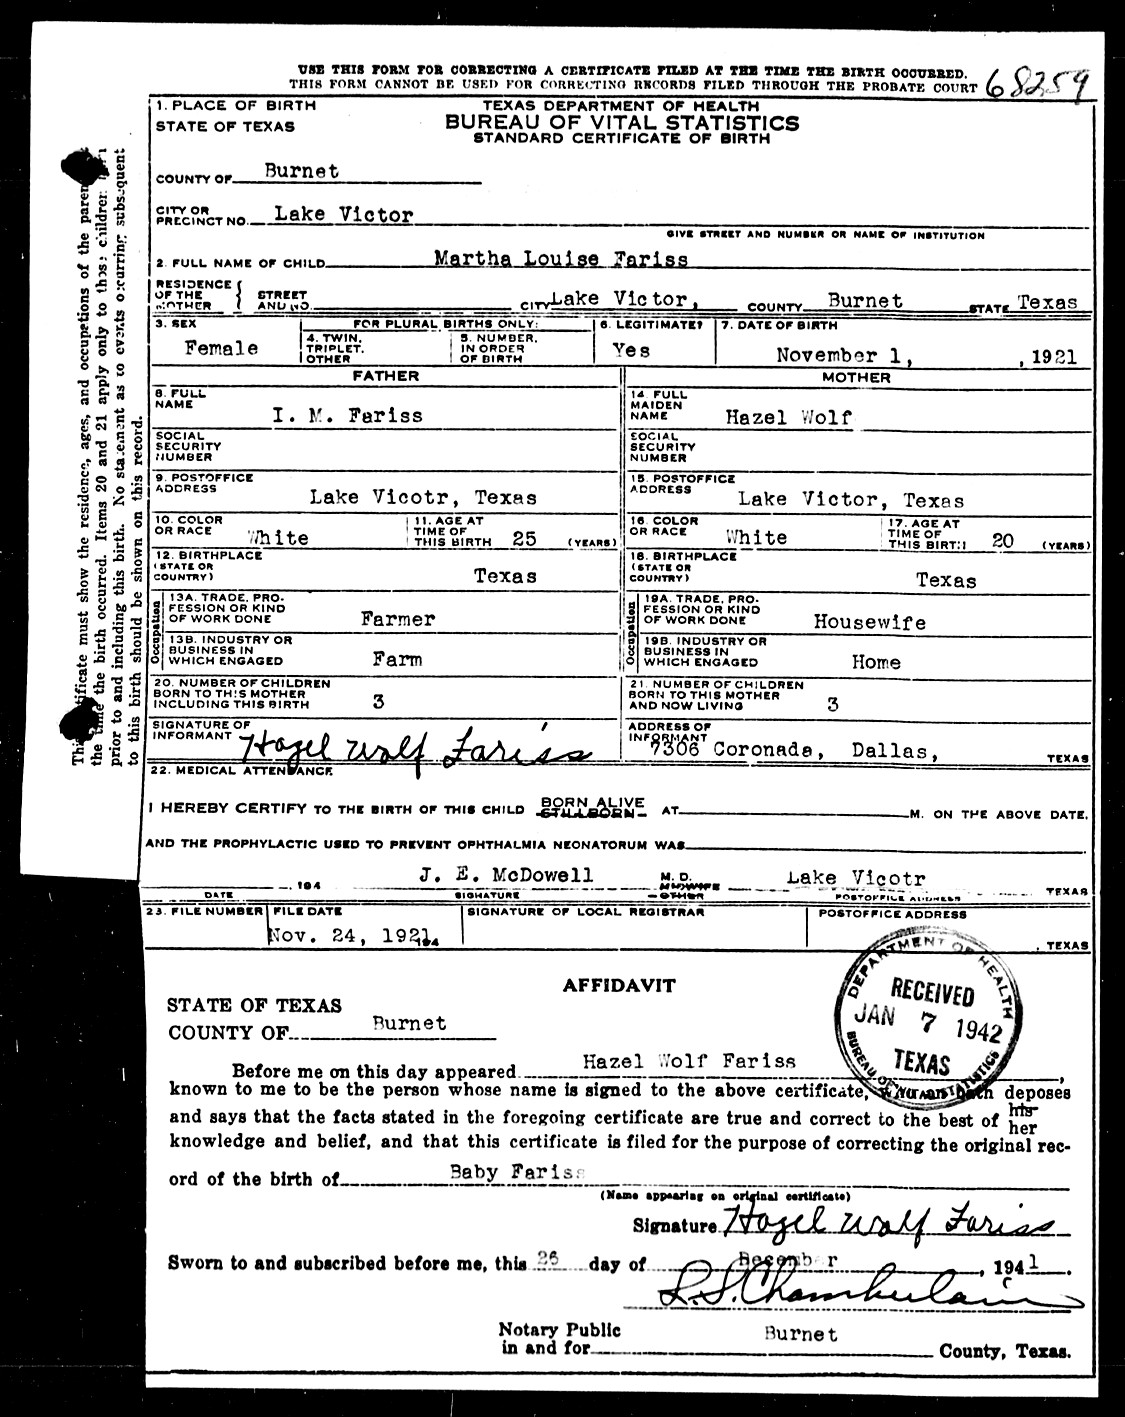 USE THIS FORM FOR CORRECTING A CERTIFICATE FILED AT THE TIME THE BIRTH OCCURRED.
THIS FORM CANNOT BE USED FOR CORRECTING RECORDS FILED THROUGH THE PROBATE COURT 68259
1. PLACE OF BIRTH TEXAS DEPARTMENT OF HEALTH
STATE OF TEXAS BUREAU OF VITAL STATISTICS
STANDARD CERTIFICATE OF BIRTH
COUNTY OF Burnet
CITY OR
PRECINCT NO. Lake Victor
GIVE STREET AND NUMBER OR NAME OF INSTITUTION
2. FULL NAME OF CHILD Martha Louise Fariss
RESIDENCE
OF THE
MOTHER { STREET
AND NO. CITY Lake Victor, COUNTY Burnet STATE Texas
3. SEX Female
FOR PLURAL BIRTHS ONLY:
4. TWIN,
TRIPLET,
OTHER
5. NUMBER,
IN ORDER
OF BIRTH
6. LEGITIMATE? Yes
7. DATE OF BIRTH
November 1, , 1921
FATHER
8. FULL
NAME I. M. Fariss
SOCIAL
SECURITY
NUMBER
9. POSTOFFICE
ADDRESS Lake Vicotr, Texas
10. COLOR
OR RACE White
11. AGE AT
TIME OF
THIS BIRTH 25 (YEARS)
12. BIRTHPLACE
(STATE OR
COUNTRY) Texas
Occupation
13A. TRADE, PRO-
FESSION OR KIND
OF WORK DONE Farmer
13B. INDUSTRY OR
BUSINESS IN
WHICH ENGAGED Farm
20. NUMBER OF CHILDREN
BORN TO THIS MOTHER
INCLUDING THIS BIRTH 3
SIGNATURE OF
INFORMANT Hazel Wolf Fariss
MOTHER
14. FULL
MAIDEN
NAME Hazel Wolf
SOCIAL
SECURITY
NUMBER
15. POSTOFFICE
ADDRESS Lake Victor, Texas
16. COLOR
OR RACE White
17. AGE AT
TIME OF
THIS BIRTH 20 (YEARS)
18. BIRTHPLACE
(STATE OR
COUNTRY) Texas
Occupation
19A. TRADE, PRO-
FESSION OR KIND
OF WORK DONE Housewife
19B. INDUSTRY OR
BUSINESS IN
WHICH ENGAGED Home
21. NUMBER OF CHILDREN
BORN TO THIS MOTHER
AND NOW LIVING 3
ADDRESS OF
INFORMANT 7306 Coronada, Dallas, TEXAS
22. MEDICAL ATTENDANCE
I HEREBY CERTIFY TO THE BIRTH OF THIS CHILD BORN ALIVE
STILLBORN AT M. ON THE ABOVE DATE,
AND THE PROPHYLACTIC USED TO PREVENT OPHTHALMIA NEONATORUM WAS
, 194 J. E. McDowell M. D.
MIDWIFE
OTHER Lake Vicotr TEXAS
DATE SIGNATURE POSTOFFICE ADDRESS
23. FILE NUMBER FILE DATE SIGNATURE OF LOCAL REGISTRAR POSTOFFICE ADDRESS
Nov. 24, 1921 194 , TEXAS
DEPARTMENT OF HEALTH
RECEIVED
JAN 7 1942
TEXAS
BUREAU OF VITAL STATISTICS
AFFIDAVIT
STATE OF TEXAS
COUNTY OF Burnet
Before me on this day appeared Hazel Wolf Fariss ,
known to me to be the person whose name is signed to the above certificate, deposes
and says that the facts stated in the foregoing certificate are true and correct to the best of his
her
knowledge and belief, and that this certificate is filed for the purpose of correcting the original rec-
ord of the birth of Baby Fariss
(Name appearing on original certificate)
Signature Hazel Wolf Fariss
Sworn to and subscribed before me, this 26 day of December , 1941 .
L. S. Chamberlain
Notary Public
in and for Burnet County, Texas.
This certificate must show the residence, ages, and occupations of the parents
the time the birth occurred. Items 20 and 21 apply only to those children born
prior to and including this birth. No statement as to events occurring subsequent
to this birth should be shown on this record.